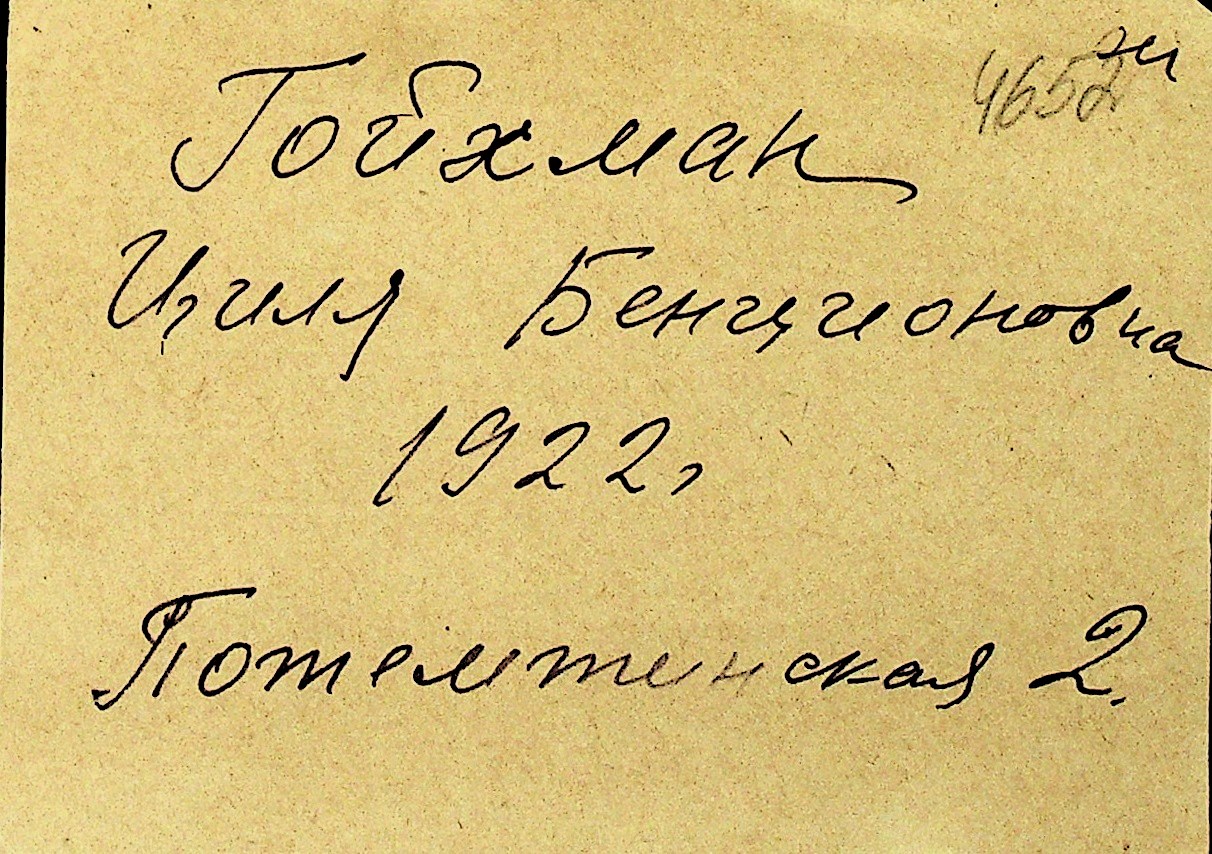 4652
Гойхман
Циля Бенционовна
1922г
Потемтенская 2.